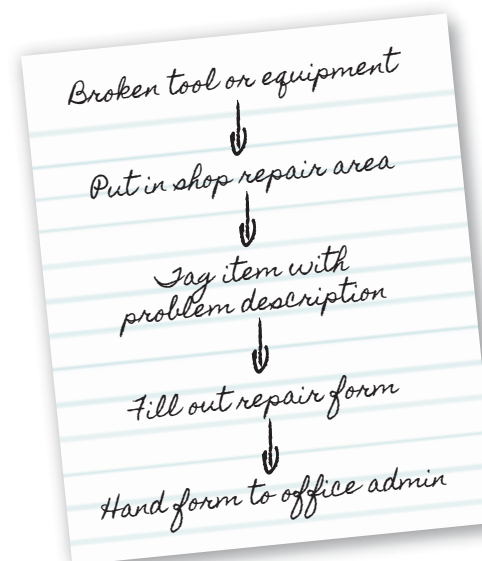 Broken tool or equipment
Put in shop repair area
Tag item with
problem description
Fill out repair form
Hand form to office admin